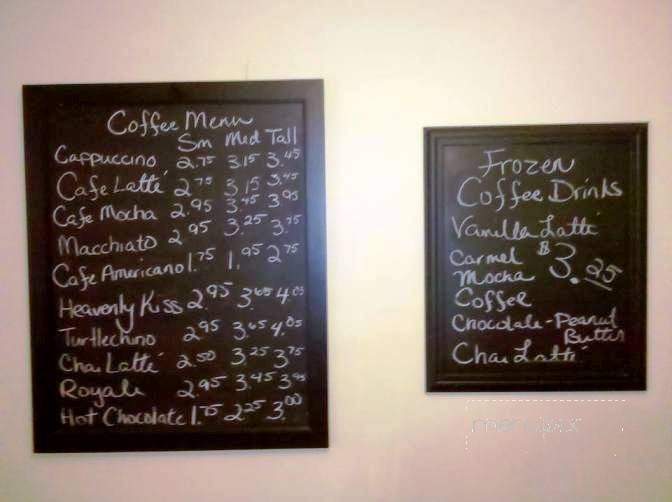 Coffee Menu
Sm Med Tall
Cappuccino 2.75 3.15 3.45
Cafe Latté 2.75 3.15 3.45
Cafe Mocha 2.95 3.45 3.95
Macchiato 2.95 3.25 3.75
Cafe Americano 1.75 1.95 2.75
Heavenly Kiss 2.95 3.65 4.05
Turtlechino 2.95 3.65 4.05
Chai Latté 2.50 3.25 3.75
Royale 2.95 3.45 3.95
Hot Chocolate 1.75 2.25 3.00
Frozen
Coffee Drinks
Vanilla Latté
Carmel $3.25
Mocha
Coffee
Chocolate-Peanut
Butter
Chai Latté